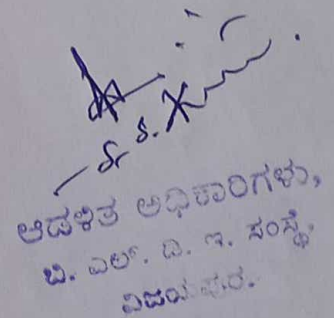 ಆಡಳಿತ ಅಧಿಕಾರಿಗಳು,
ಬಿ. ಎಲ್. ಡಿ. ಇ. ಸಂಸ್ಥೆ,
ವಿಜಯಪುರ.